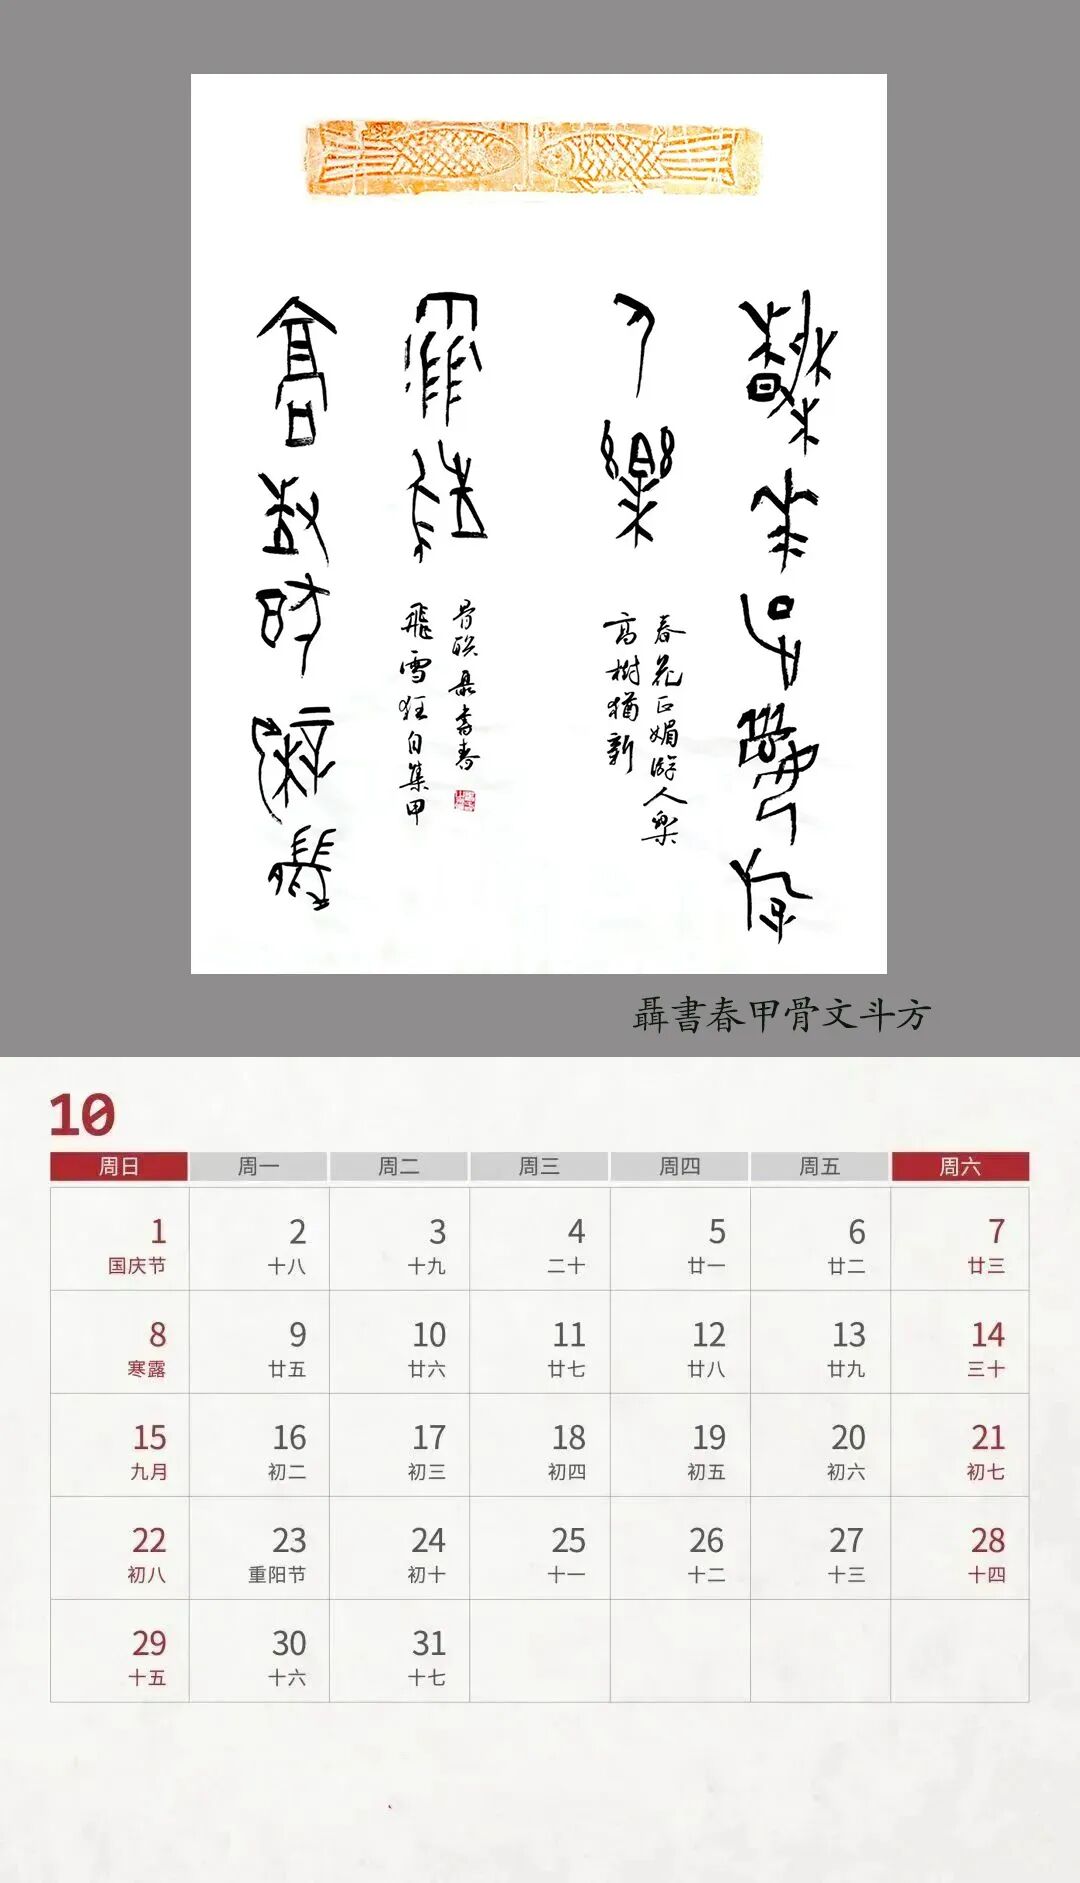 春花正媚游
人樂
春花正媚游人樂
高樹猶新
高樹猶新飛
雪狂
飛雪狂自集甲
骨联聶書春
聶書春甲骨文斗方
10
周日 周一 周二 周三 周四 周五 周六
1 2 3 4 5 6 7
国庆节 十八 十九 二十 廿一 廿二 廿三
8 9 10 11 12 13 14
寒露 廿五 廿六 廿七 廿八 廿九 三十
15 16 17 18 19 20 21
九月 初二 初三 初四 初五 初六 初七
22 23 24 25 26 27 28
初八 重阳节 初十 十一 十二 十三 十四
29 30 31
十五 十六 十七